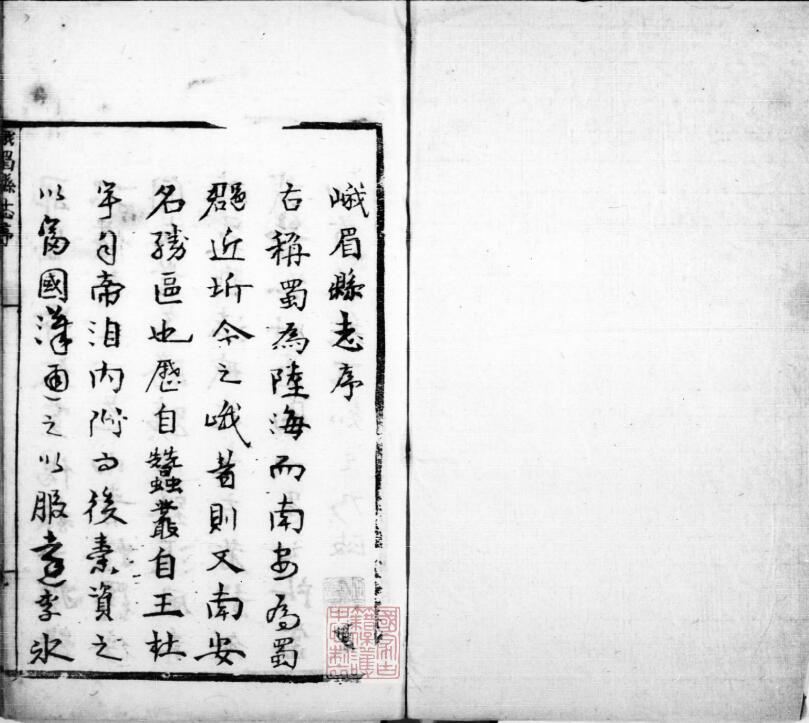 峨眉縣志序
古稱蜀為陸海而南安為蜀
近圻今之峨昔則又南安
名勝區也歷自蠶叢自王杜
宇自帝洎內附而後秦資之
以富國漢通之以服遠李冰
峨眉縣志序